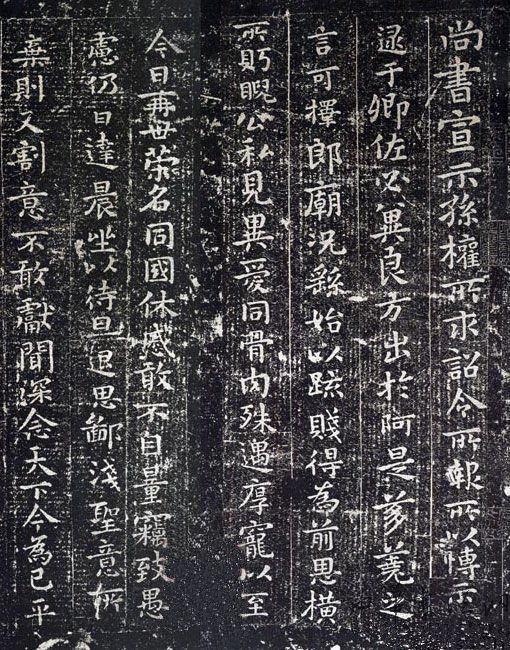 尚書宣示孫權所求詔令所報所以博示
逮于卿佐必冀良方出於阿是芻蕘之
言可擇郎廟況繇始以踈賤得為前恩橫
所眄睨公私見異愛同骨肉殊遇厚寵以至
今日再世榮名同國休慼敢不自量竊致愚
慮仍日達晨坐以待旦退思鄙淺聖意所
棄則又割意不敢獻聞深念天下今為已平